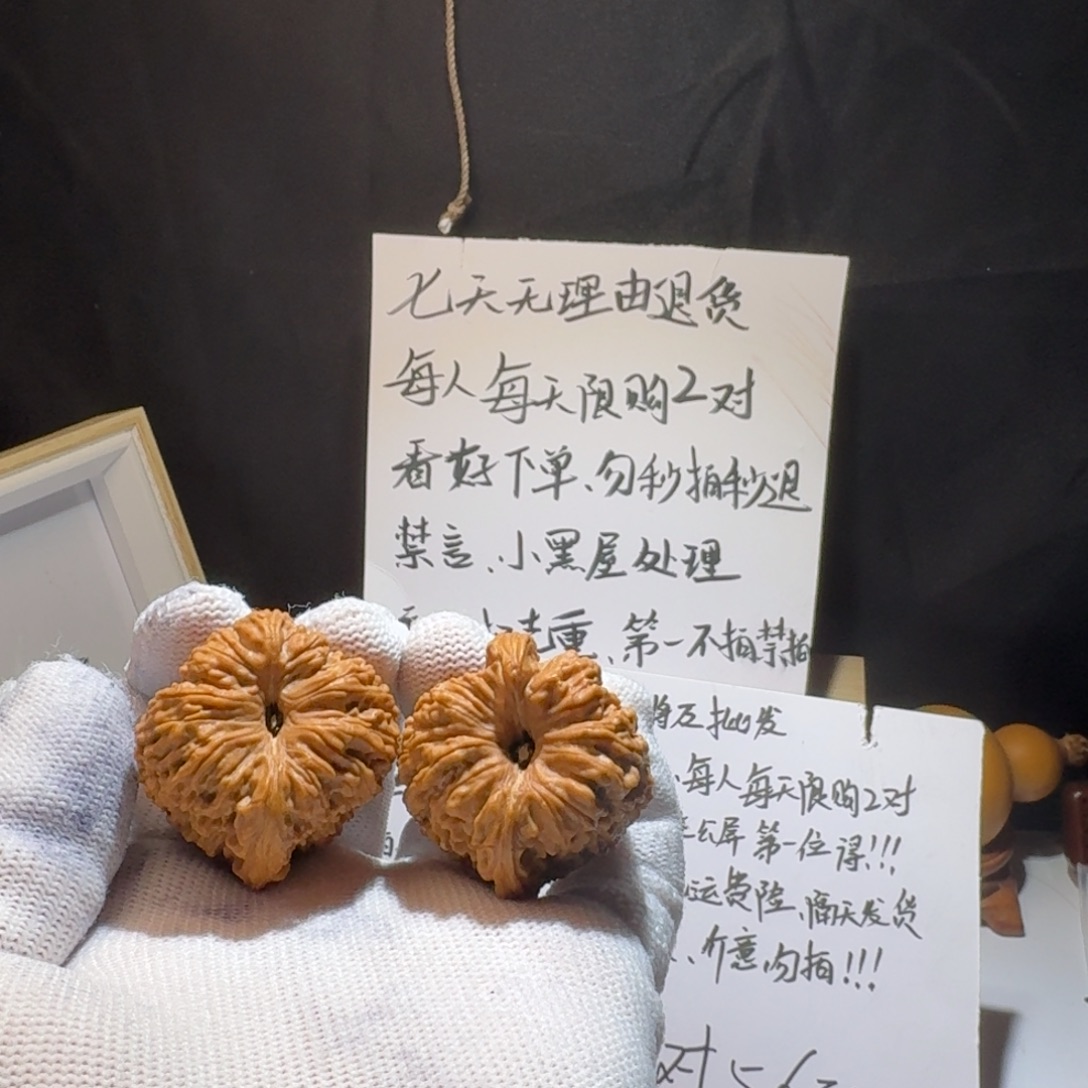 七天无理由退货
每人每天限购2对
看好下单、勿秒拍秒退
禁言、小黑屋处理
重、第一不拍禁拍
批发
每人每天限购2对
公屏第一位得!!!
运费险、隔天发货
、介意勿拍!!!
对